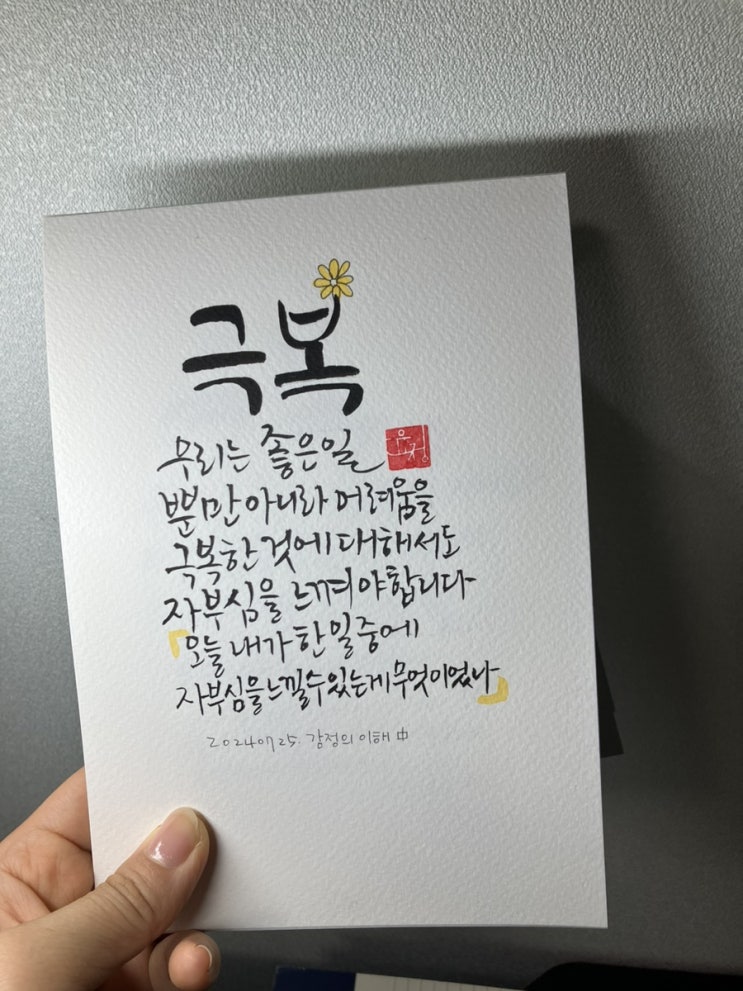 극복
우리는 좋은일
유정
뿐만 아니라 어려움을
극복한 것에 대해서도
자부심을 느껴야합니다
『오늘 내가 한 일 중에
자부심을 느낄 수 있는게 무엇이었나』
20240725. 감정의 이해 中